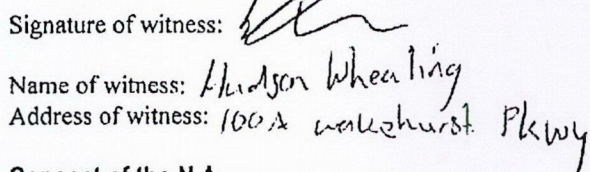 Signature of witness:
Name of witness: Hudson Wheating
Address of witness: 100A wakehurst Pkwy